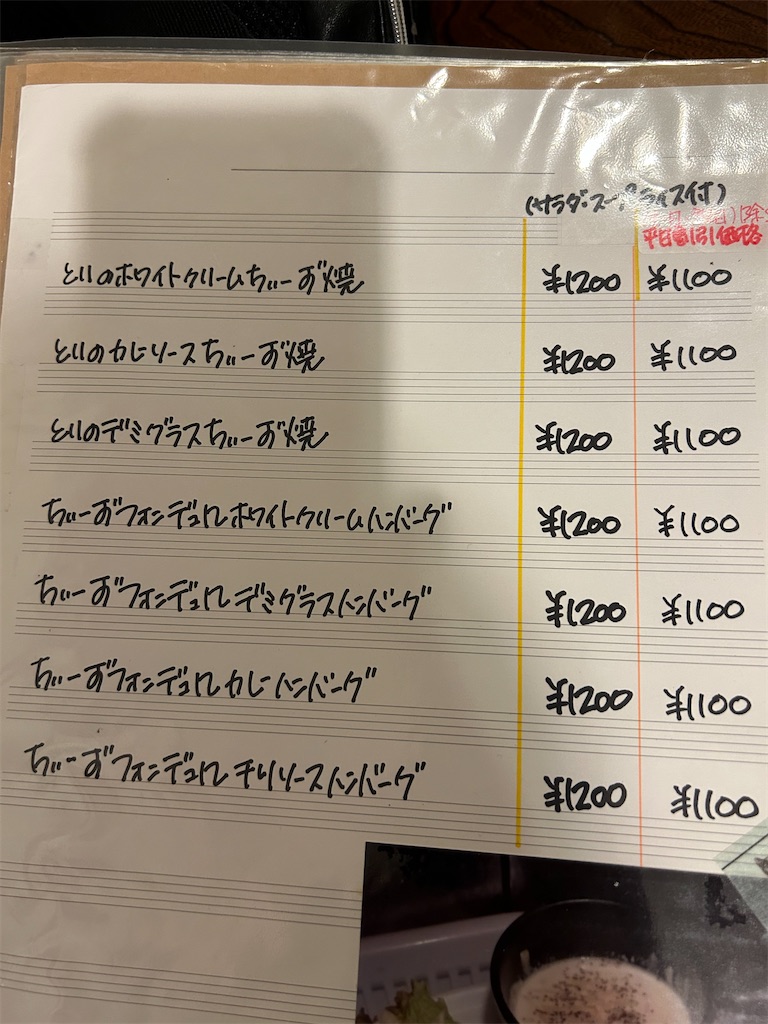 (サラダ・スープ ライス付)
平日割引価格
とりのホワイトクリームちぃーず焼 ¥1200 ¥1100
とりのカレーソースちぃーず焼 ¥1200 ¥1100
とりのデミグラスちぃーず焼 ¥1200 ¥1100
ちぃーずフォンデュ風ホワイトクリームハンバーグ ¥1200 ¥1100
ちぃーずフォンデュ風デミグラスハンバーグ ¥1200 ¥1100
ちぃーずフォンデュ風カレーハンバーグ ¥1200 ¥1100
ちぃーずフォンデュ風チリソースハンバーグ ¥1200 ¥1100